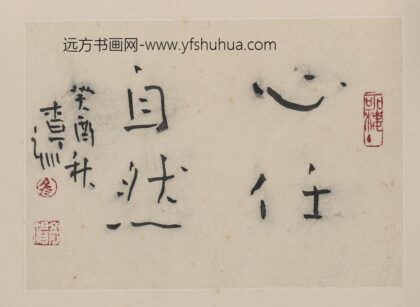 远方书画网-www.yfshuhua.com
心任
自然
癸酉秋